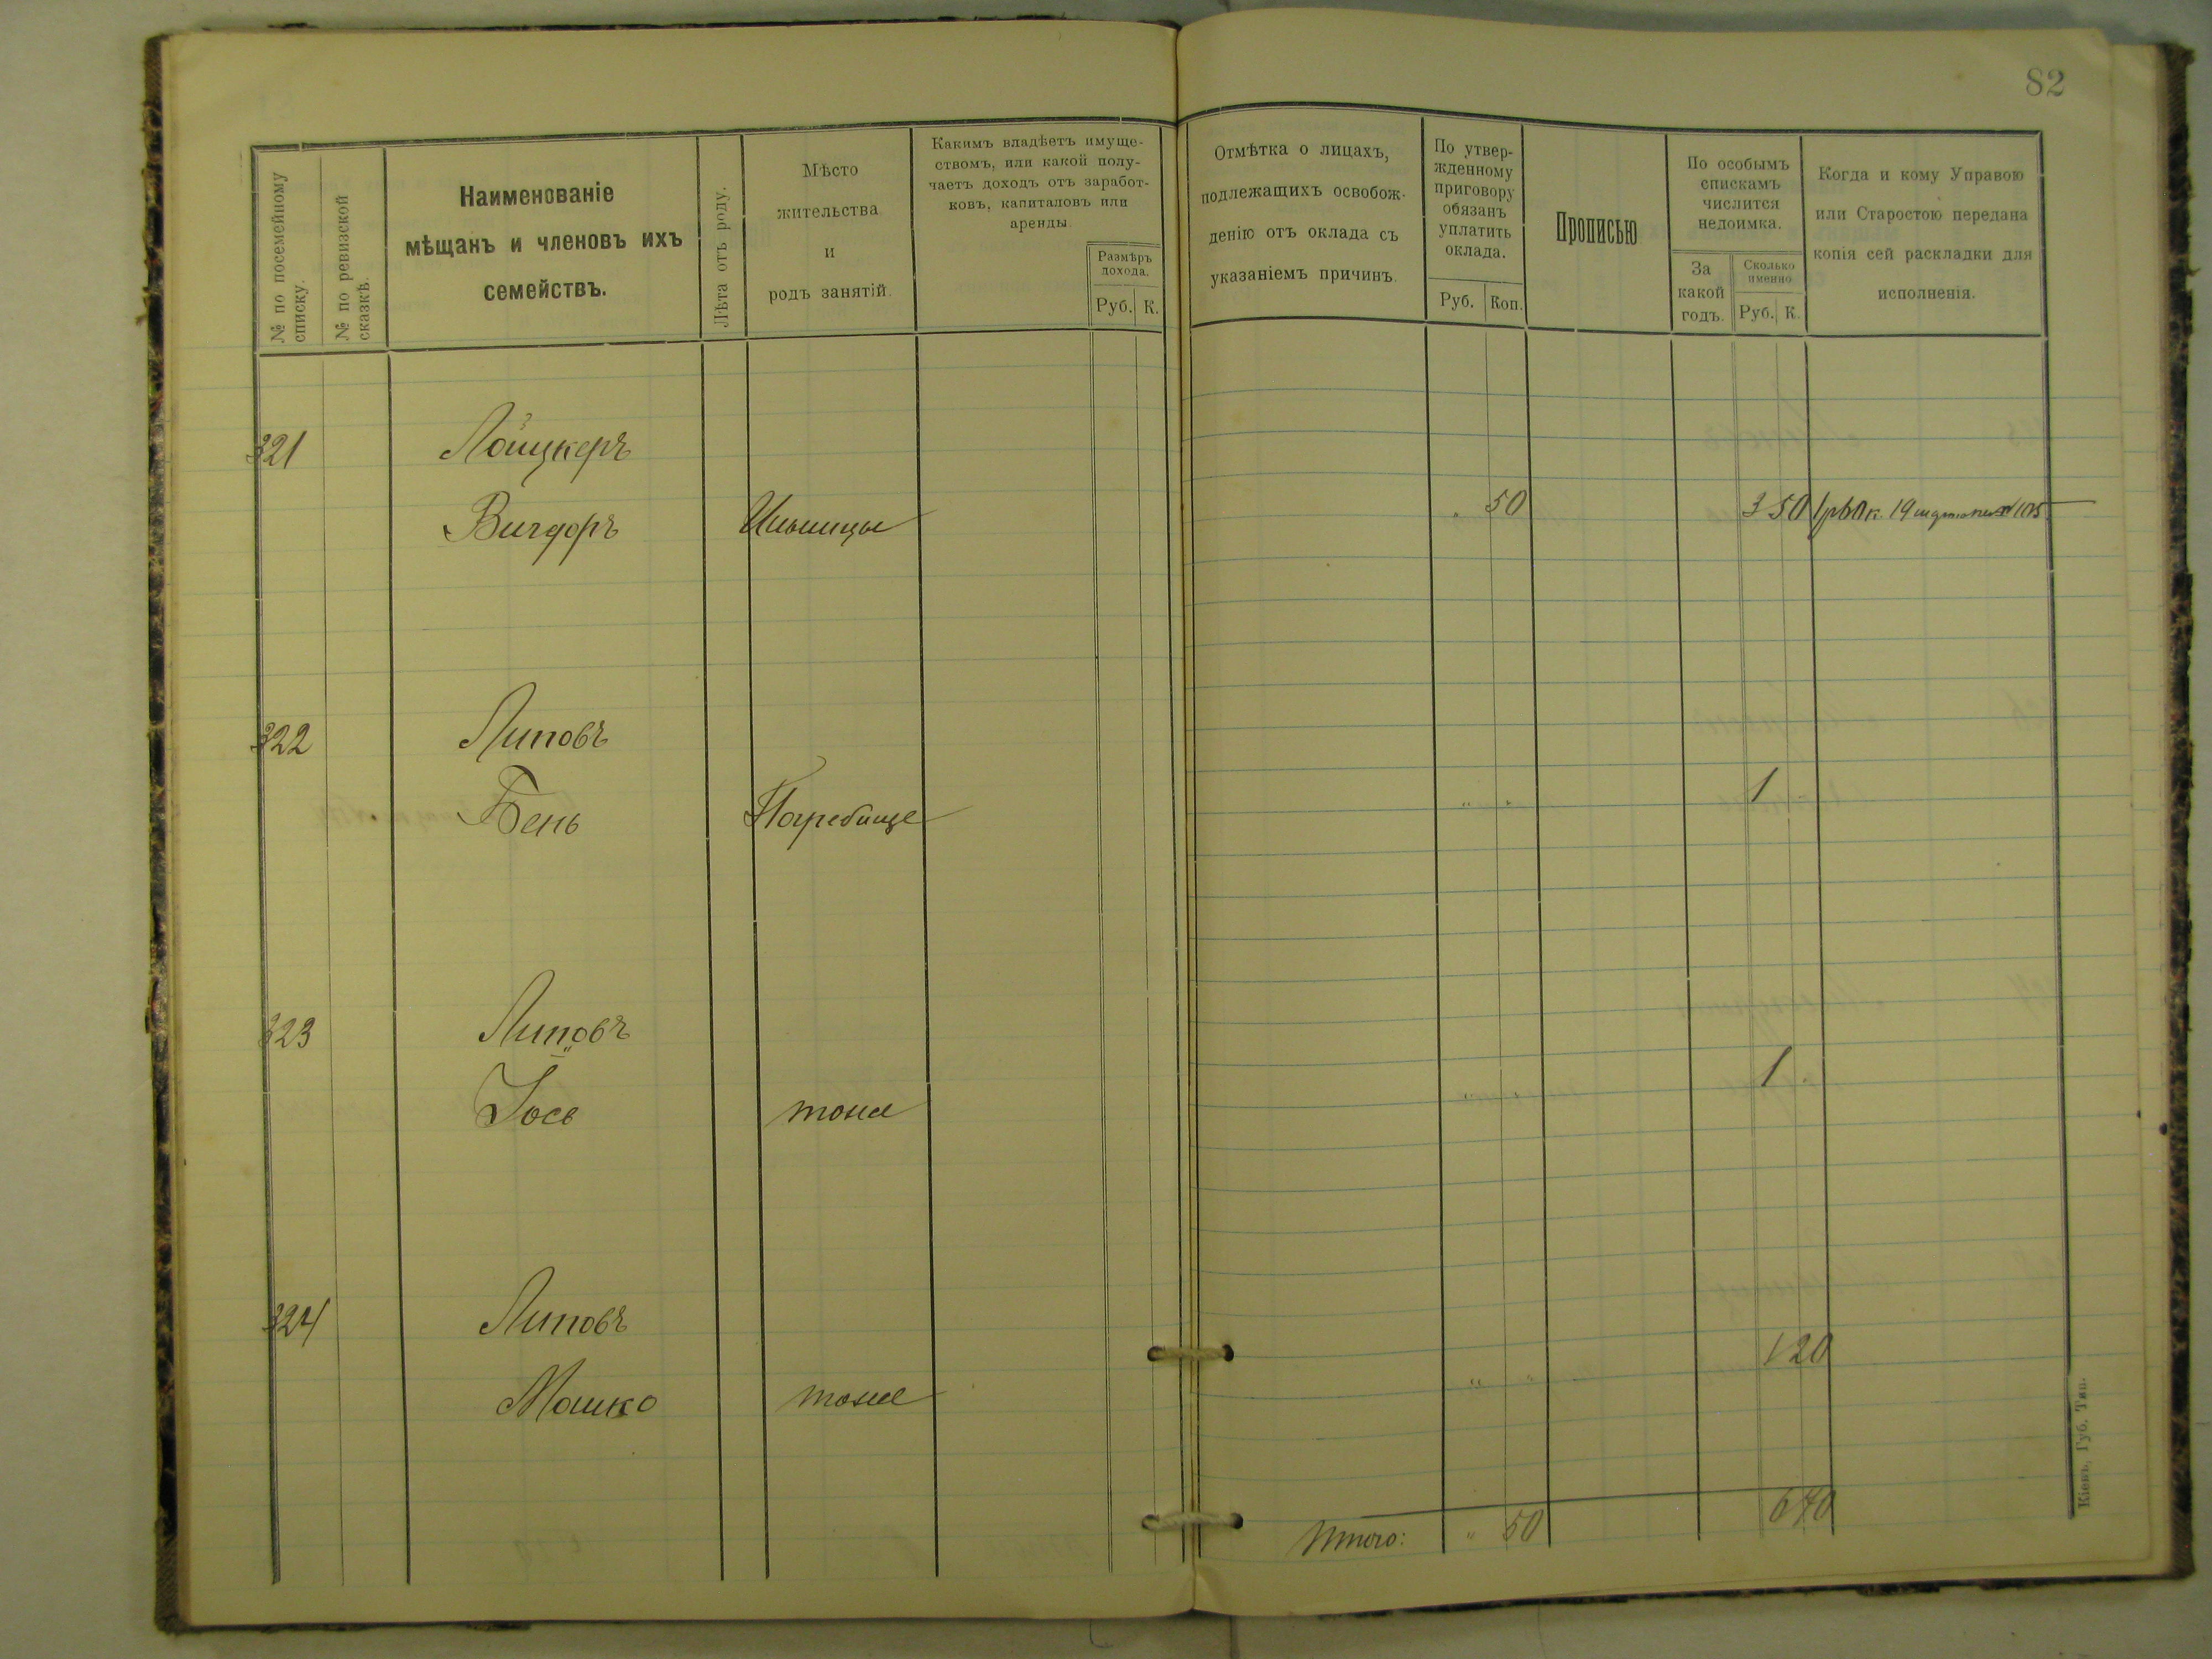 82
№ по посемейному списку.
№ по ревизской сказкѣ.
Наименованіе
мѣщанъ и членовъ ихъ
семействъ.
Лѣта отъ роду.
Мѣсто
жительства
и
родъ занятій.
Какимъ владѣетъ имуще-
ствомъ, или какой полу-
чаетъ доходъ отъ заработ-
ковъ, капиталовъ или
аренды
Размѣръ
дохода.
Руб. К.
Отмѣтка о лицахъ,
подлежащихъ освобож-
денію отъ оклада съ
указаніемъ причинъ.
По утвер-
жденному
приговору
обязанъ
уплатить
оклада.
Руб. Коп.
Прописью
По особымъ
спискамъ
числится
недоимка.
За
какой
годъ.
Сколько
именно
Руб. К.
Когда и кому Управою
или Старостою передана
копія сей раскладки для
исполненія.
321 Лойцкеръ
Вигдоръ Ильинцы " 50 3 50
322 Липовъ
Бень Погребище " " 1
323 Липовъ
Іось тоже " " 1
324 Липовъ
Мошко тоже " " 1 20
Итого: " 50 6 70
Кіевъ, Губ. Тип.